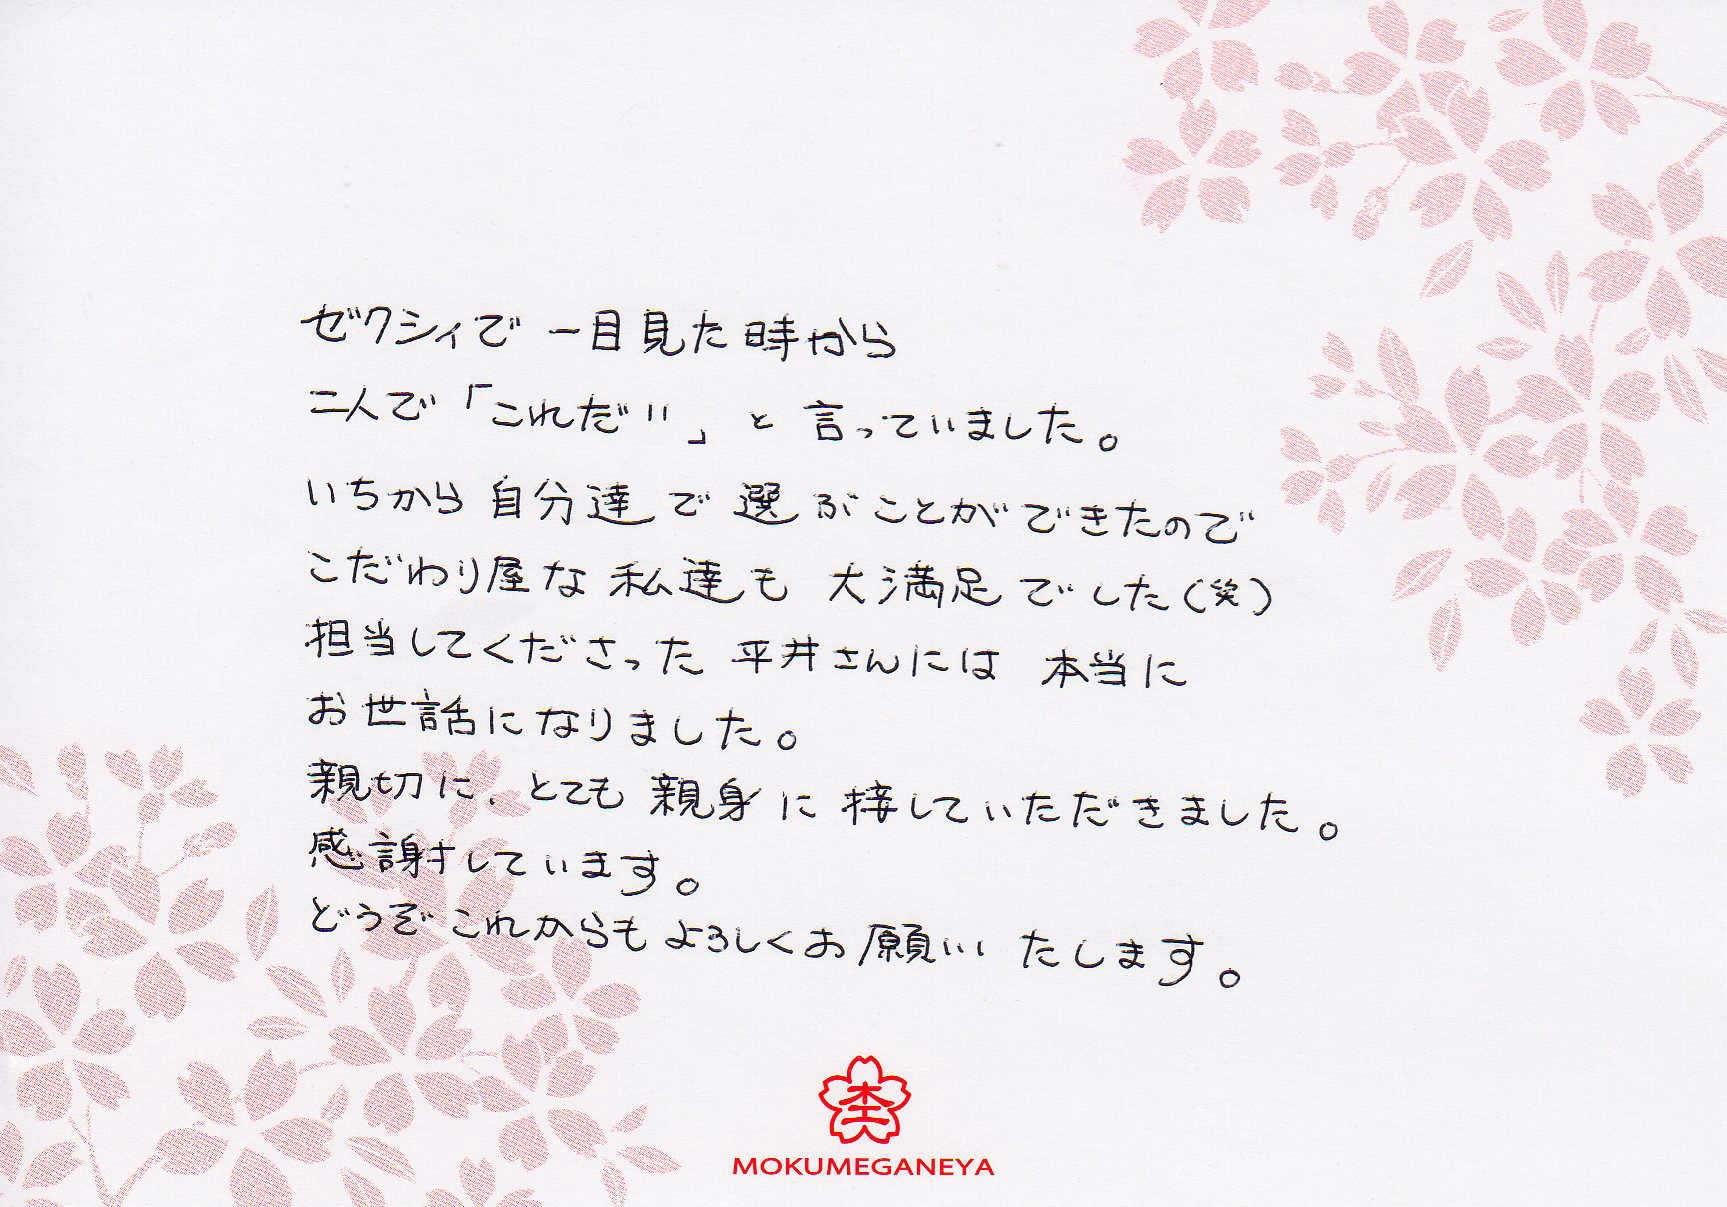 ゼクシィで 一目見た時から
二人で「これだ!!」と 言っていました。
いちから 自分達で 選ぶことができたので
こだわり屋な 私達も 大満足でした(笑)
担当してくださった 平井さんには 本当に
お世話になりました。
親切に、とても 親身に 接していただきました。
感謝しています。
どうぞ これからも よろしくお願いいたします。
杢
MOKUMEGANEYA